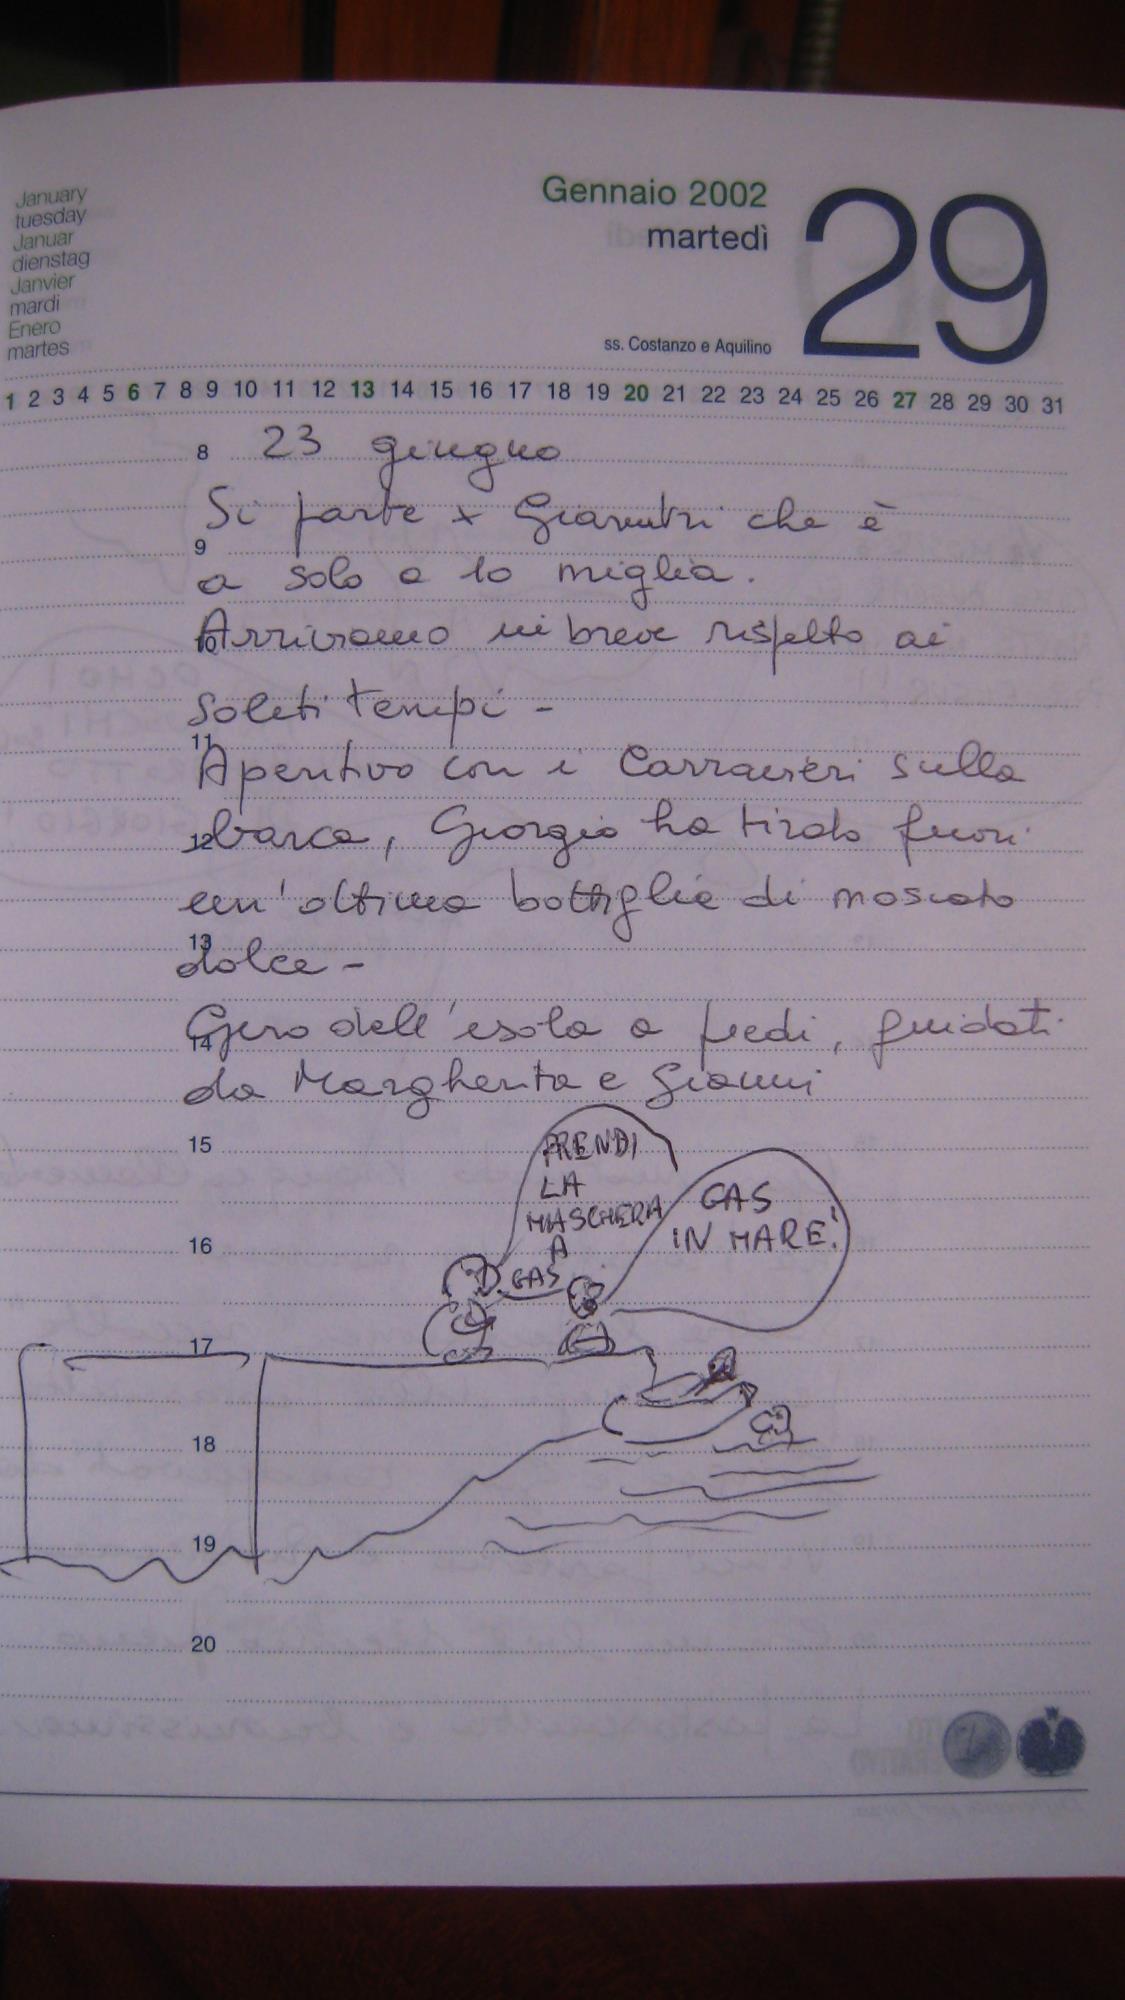 January
tuesday
Januar
dienstag
Janvier
mardi
Enero
martes
Gennaio 2002
martedì
29
ss. Costanzo e Aquilino
1 2 3 4 5 6 7 8 9 10 11 12 13 14 15 16 17 18 19 20 21 22 23 24 25 26 27 28 29 30 31
8 23 giugno
Si parte x Giannutri che è
9
a solo a 10 miglia.
10 Arriviamo in breve rispetto ai
soliti tempi -
11
Aperitivo con i Carrarieri sulla
12 barca, Giorgio ha tirato fuori
un'ottima bottiglia di moscato
13
dolce -
14 Giro dell'isola a piedi, guidati
da Margherita e Gianni
15
PRENDI
LA
MASCHERA
A
GAS
GAS
IN MARE!
16
17
18
19
20